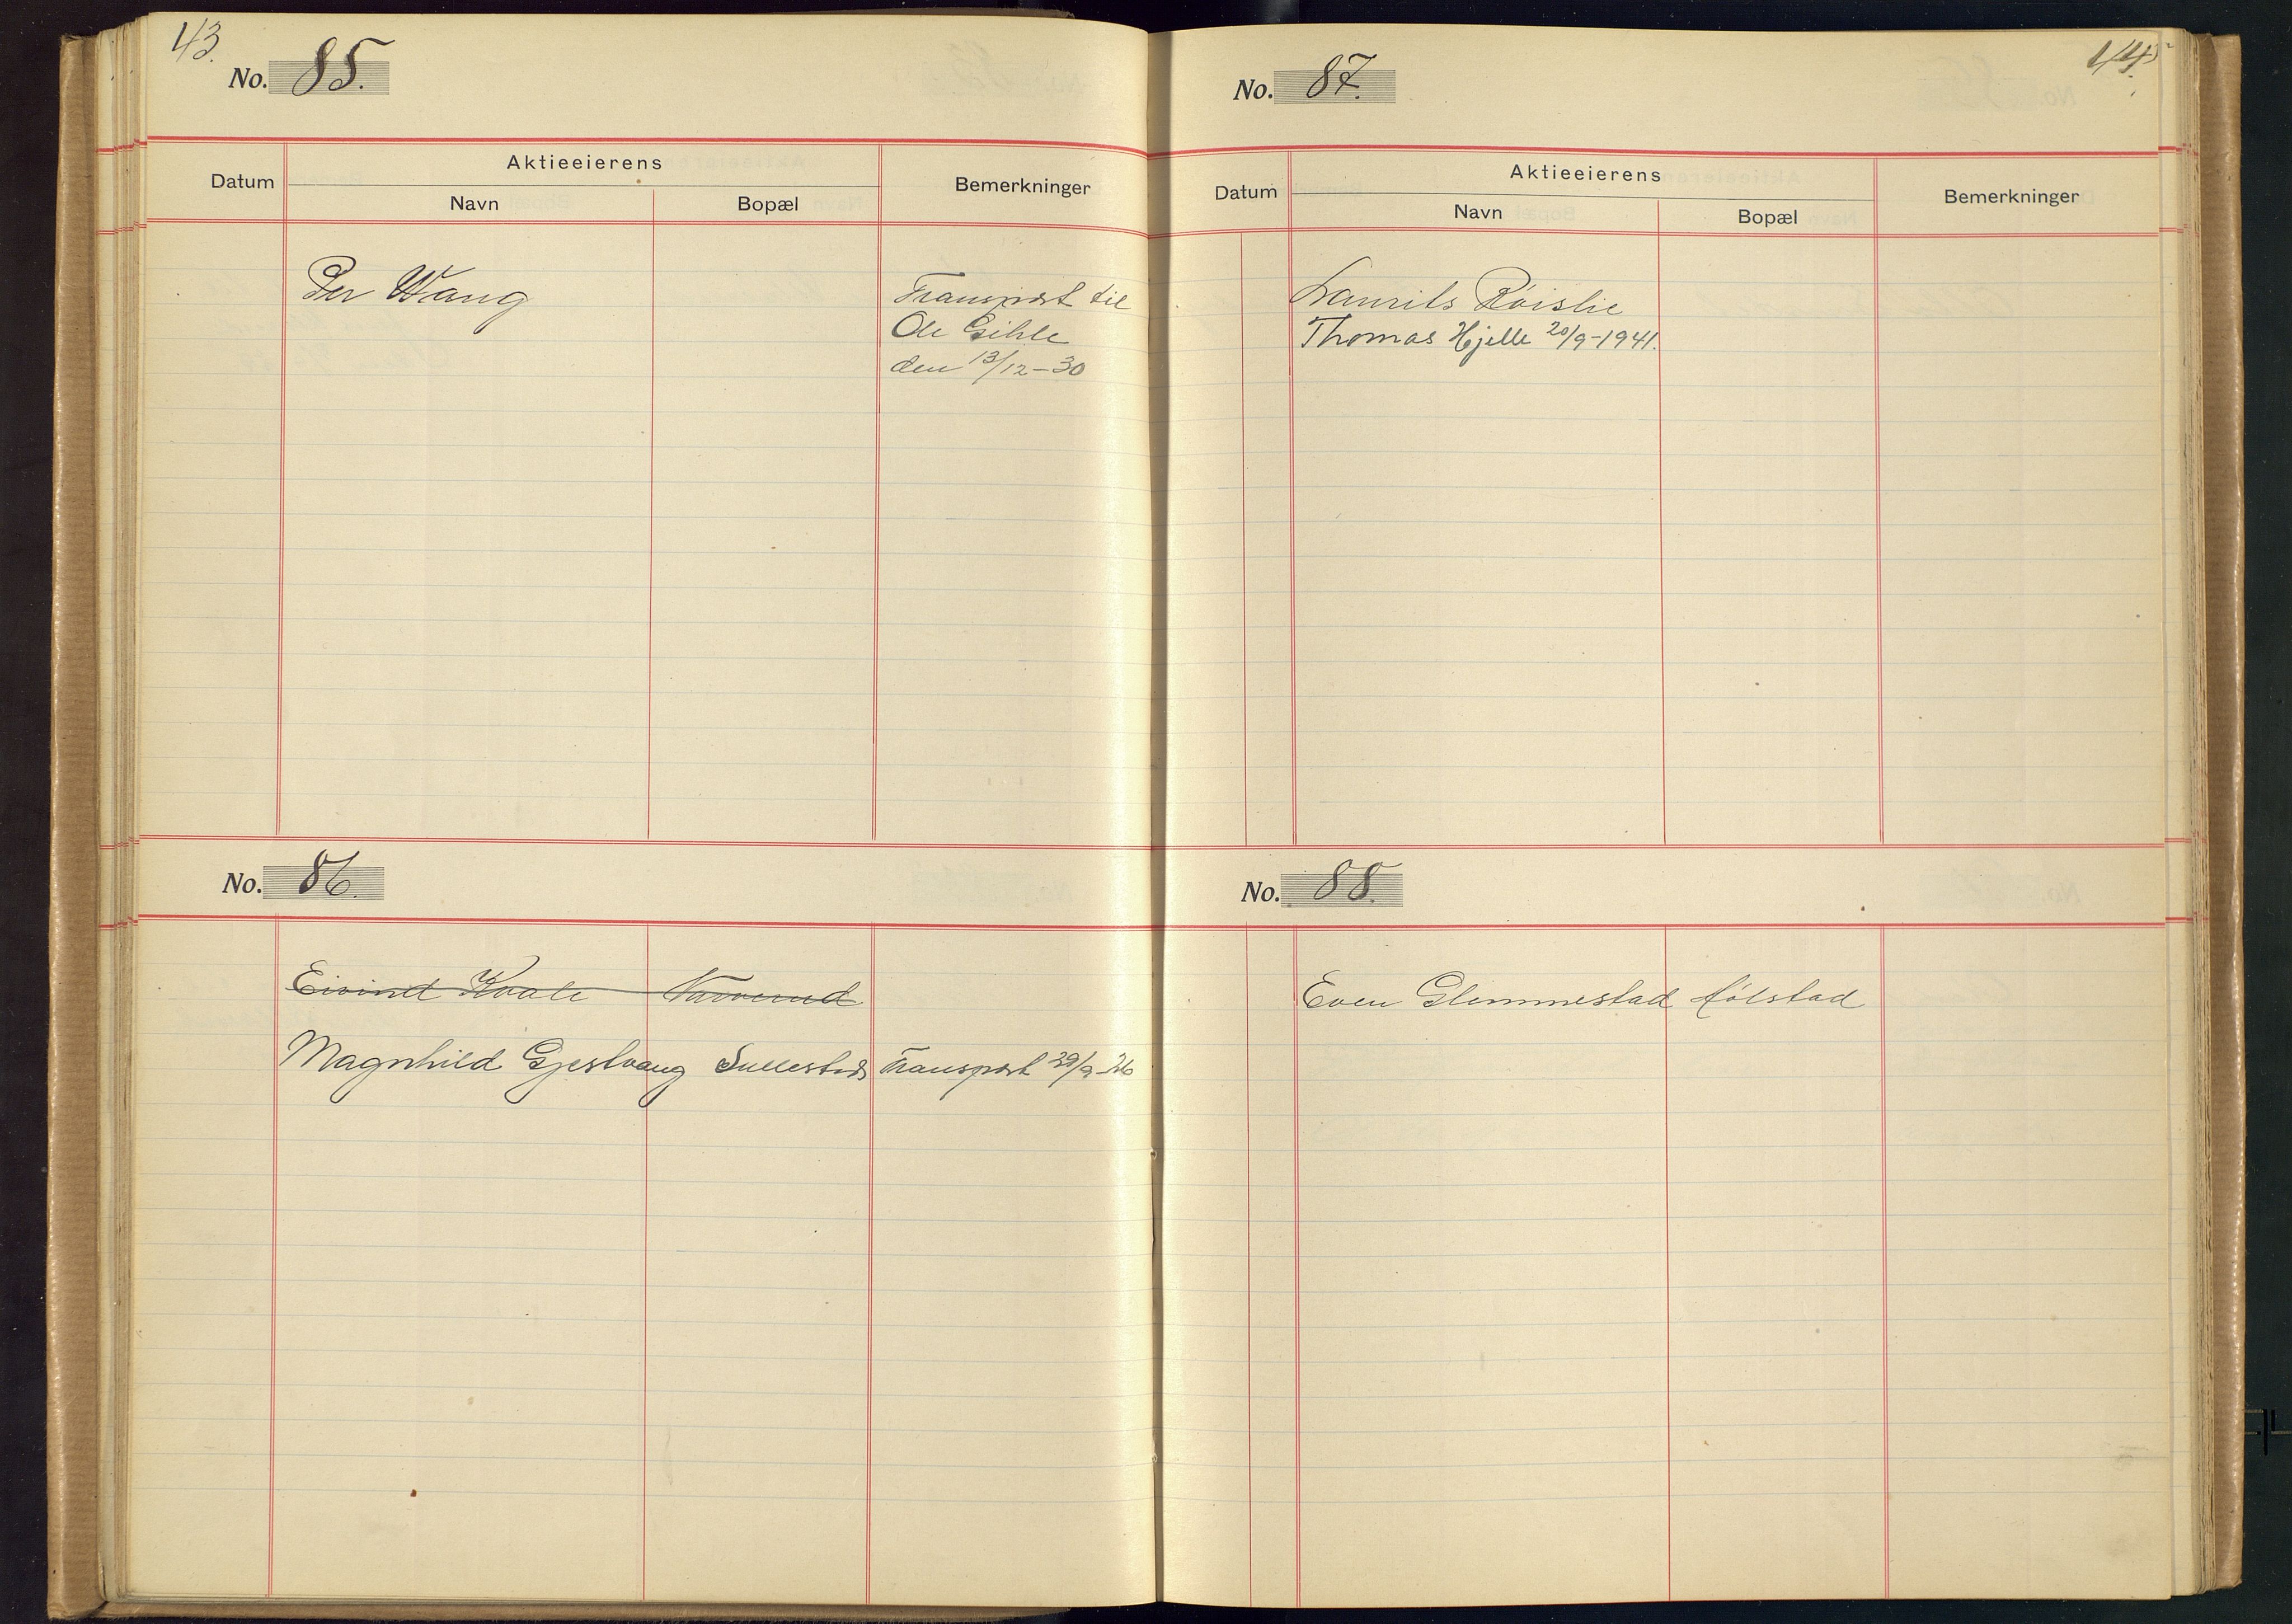 43.
No. 85.
Datum
Aktieeierens
Navn
Bopæl
Bemerkninger
Per Wang
Transport til
Ole Gihle
den 13/12-30
No. 86.
Eivind Kvale
Magnhild Gjestvang
Transport 29/9-26
44.
No. 87.
Datum
Aktieeierens
Navn
Bopæl
Bemerkninger
Laurits Röislie
Thomas Hjelle 20/9-1941.
No. 88.
Even Glemmestad Kölstad